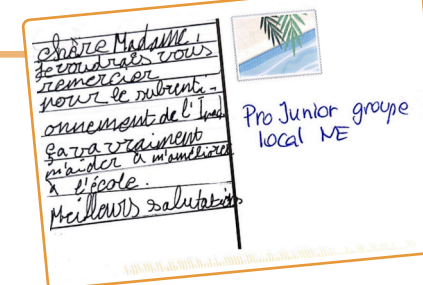 Chère Madame,
Je voudrais vous
remercier
pour le subventi-
onnement de l'Ipad,
ça va vraiment
m'aider à m'améliorer
à l'école.
Meilleurs salutations
Pro Junior groupe
local NE